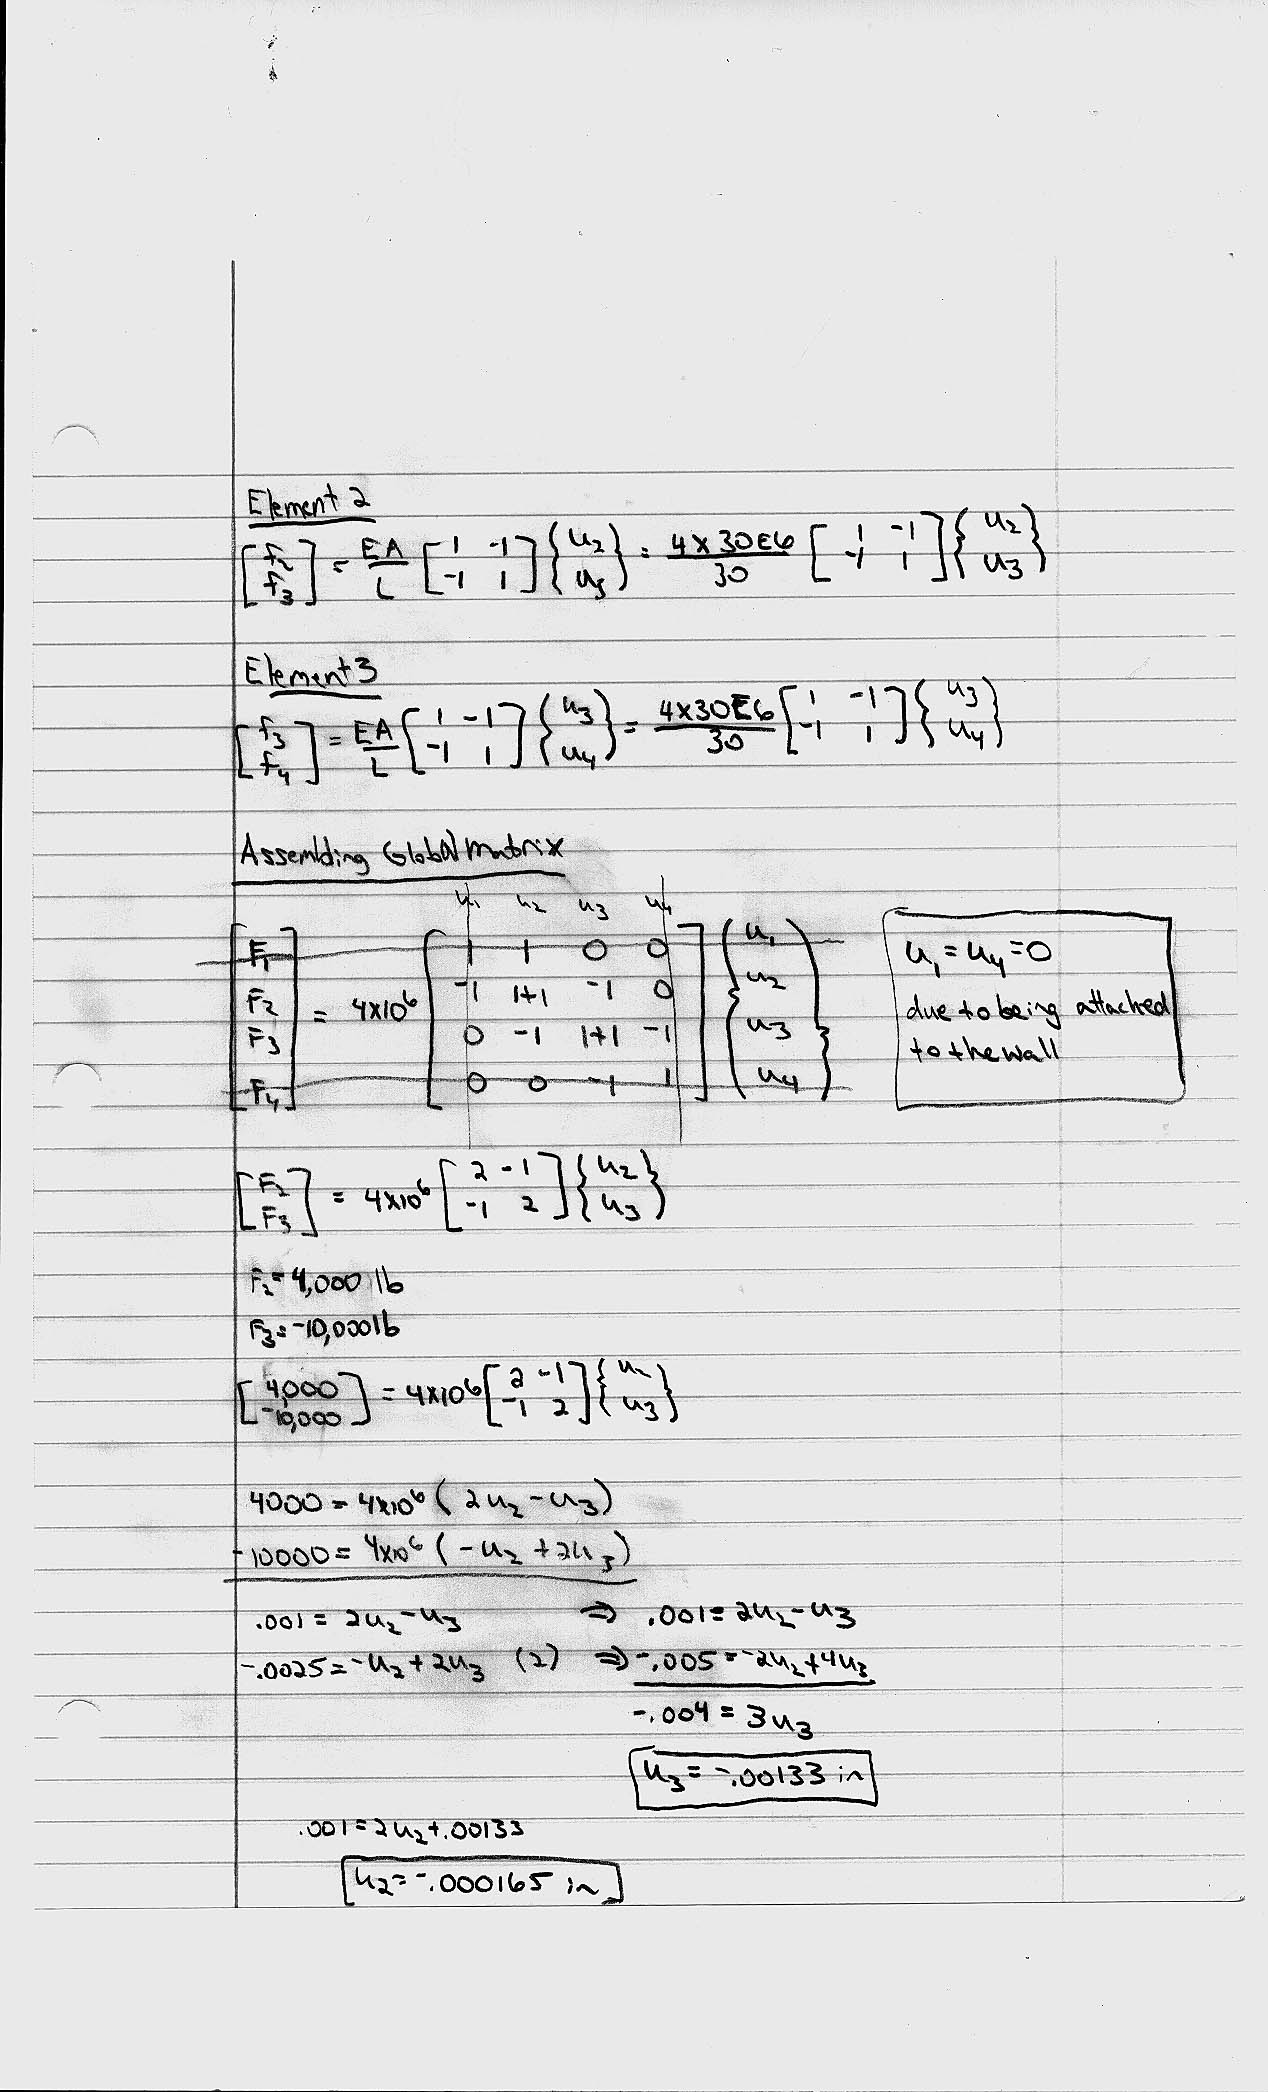 Element 2
[f2 f3] = EA/L [1 -1 -1 1] {u2 u3} = 4 x 30E6/30 [1 -1 -1 1] {u2 u3}
Element 3
[f3 f4] = EA/L [1 -1 -1 1] {u3 u4} = 4x30E6/30 [1 -1 -1 1] {u3 u4}
Assembling Global Matrix
u1 u2 u3 u4
[F1 F2 F3 F4] = 4x10^6 [1 1 0 0
-1 1+1 -1 0
0 -1 1+1 -1
0 0 -1 1] {u1 u2 u3 u4}
u1 = u4 = 0
due to being attached
to the wall
[F2 F3] = 4x10^6 [2 -1 -1 2] {u2 u3}
F2 = 4,000 lb
F3 = -10,000 lb
[4,000 -10,000] = 4x10^6 [2 -1 -1 2] {u2 u3}
4000 = 4x10^6 (2u2 - u3)
-10000 = 4x10^6 (-u2 + 2u3)
.001 = 2u2 - u3 ⇒ .001 = 2u2 - u3
-.0025 = -u2 + 2u3 (2) ⇒ -.005 = -2u2 + 4u3
-.004 = 3u3
u3 = -.00133 in
.001 = 2u2 + .00133
u2 = -.000165 in